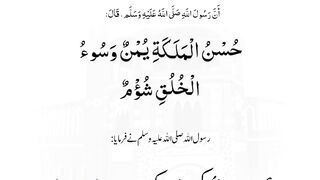 أَنَّ رَسُولَ اللَّهِ صَلَّى اللَّهُ عَلَيْهِ وَسَلَّمَ ، قَالَ:
حُسْنُ الْمَلَكَةِ يُمْنٌ وَسُوءُ
الْخُلُقِ شُؤْمٌ
رسول اللہ صلی اللہ علیہ وسلم نے فرمایا: